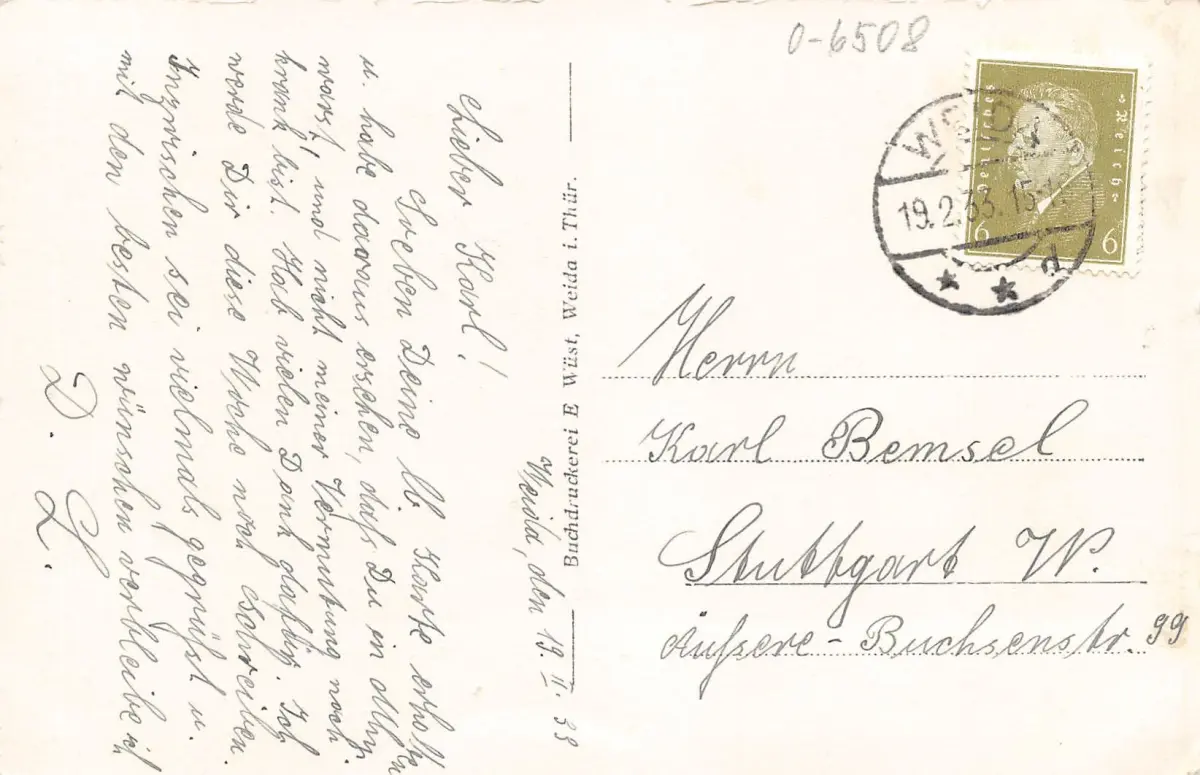 Weida, den 19. II. 33
Lieber Karl!
Soeben Deine lb. Karte erhalten
u. habe daraus ersehen, daß Du in
warst, und nicht meiner Vermutung nach
krank bist. Hab vielen Dank dafür. Ich
werde Dir diese Woche noch schreiben.
Inzwischen sei vielmals gegrüßt u.
mit den besten wünschen verbleibe ich
D. L.
Buchdruckerei E Wüst, Weida i. Thür.
0-6508
Deutsches Reich
6 6
WEIDA
19.2.33. 15-1
d
Herrn
Karl Bemsel
Stuttgart W.
Äußere-Buchsenstr. 99